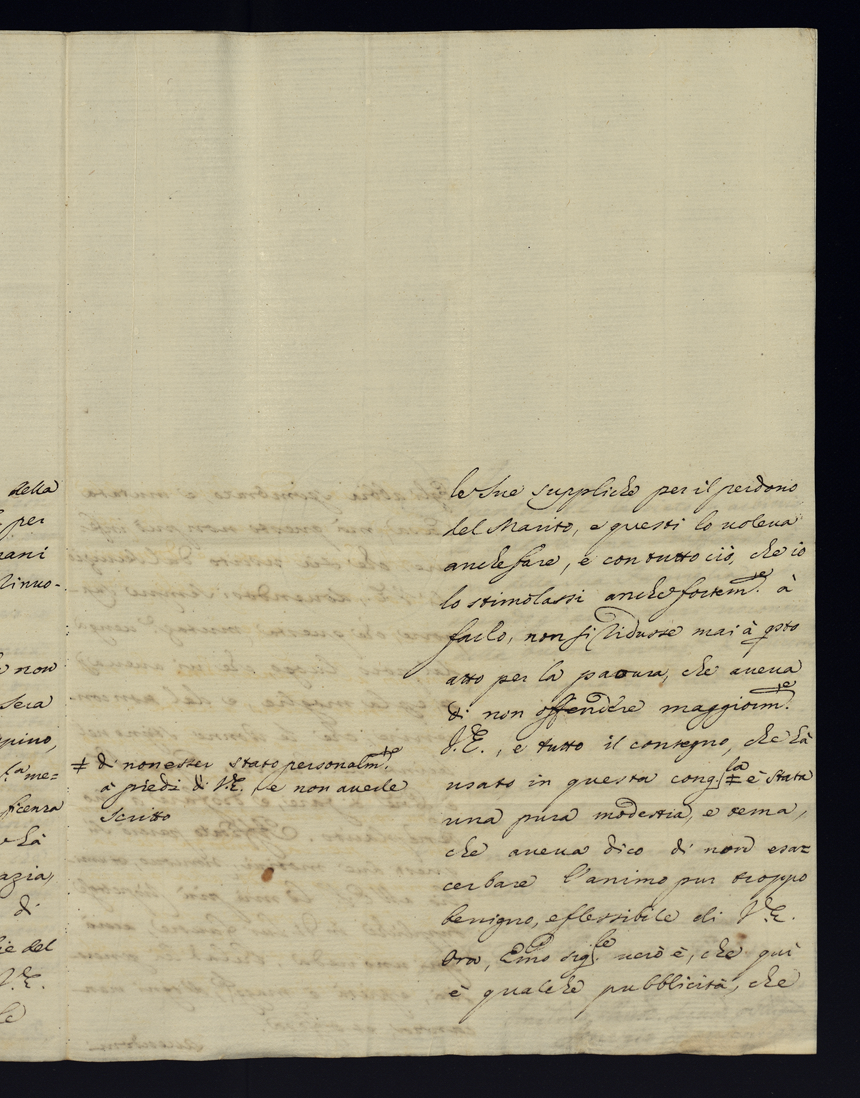 della
per
mani
rinuo-
non
sera
ppino,
me=
ficenza
hà
azia,
di
ie del
V.E.
le
≠ di non esser stato personalm.te
à piedi di V.E. e non auerle
scritto
le sue suppliche per il perdono
del Marito, e questi lo uoleua
anche fare, e con tutto ciò, che io
lo stimolassi anche fortem.te à
farlo, non si ridusse mai à qsto
atto per la paoura, che aueua
di non offendere maggiorm.te
V.E., e tutto il contegno, che hà
usato in questa cong.la ≠ è stata
una pura modestia, e tema,
che aueua dico di non esar=
cerbare l'animo pur troppo
benigno, e flessibile di V.E.
Ora, Emo Sig.re uero è, che qui
è qualche pubblicità, che